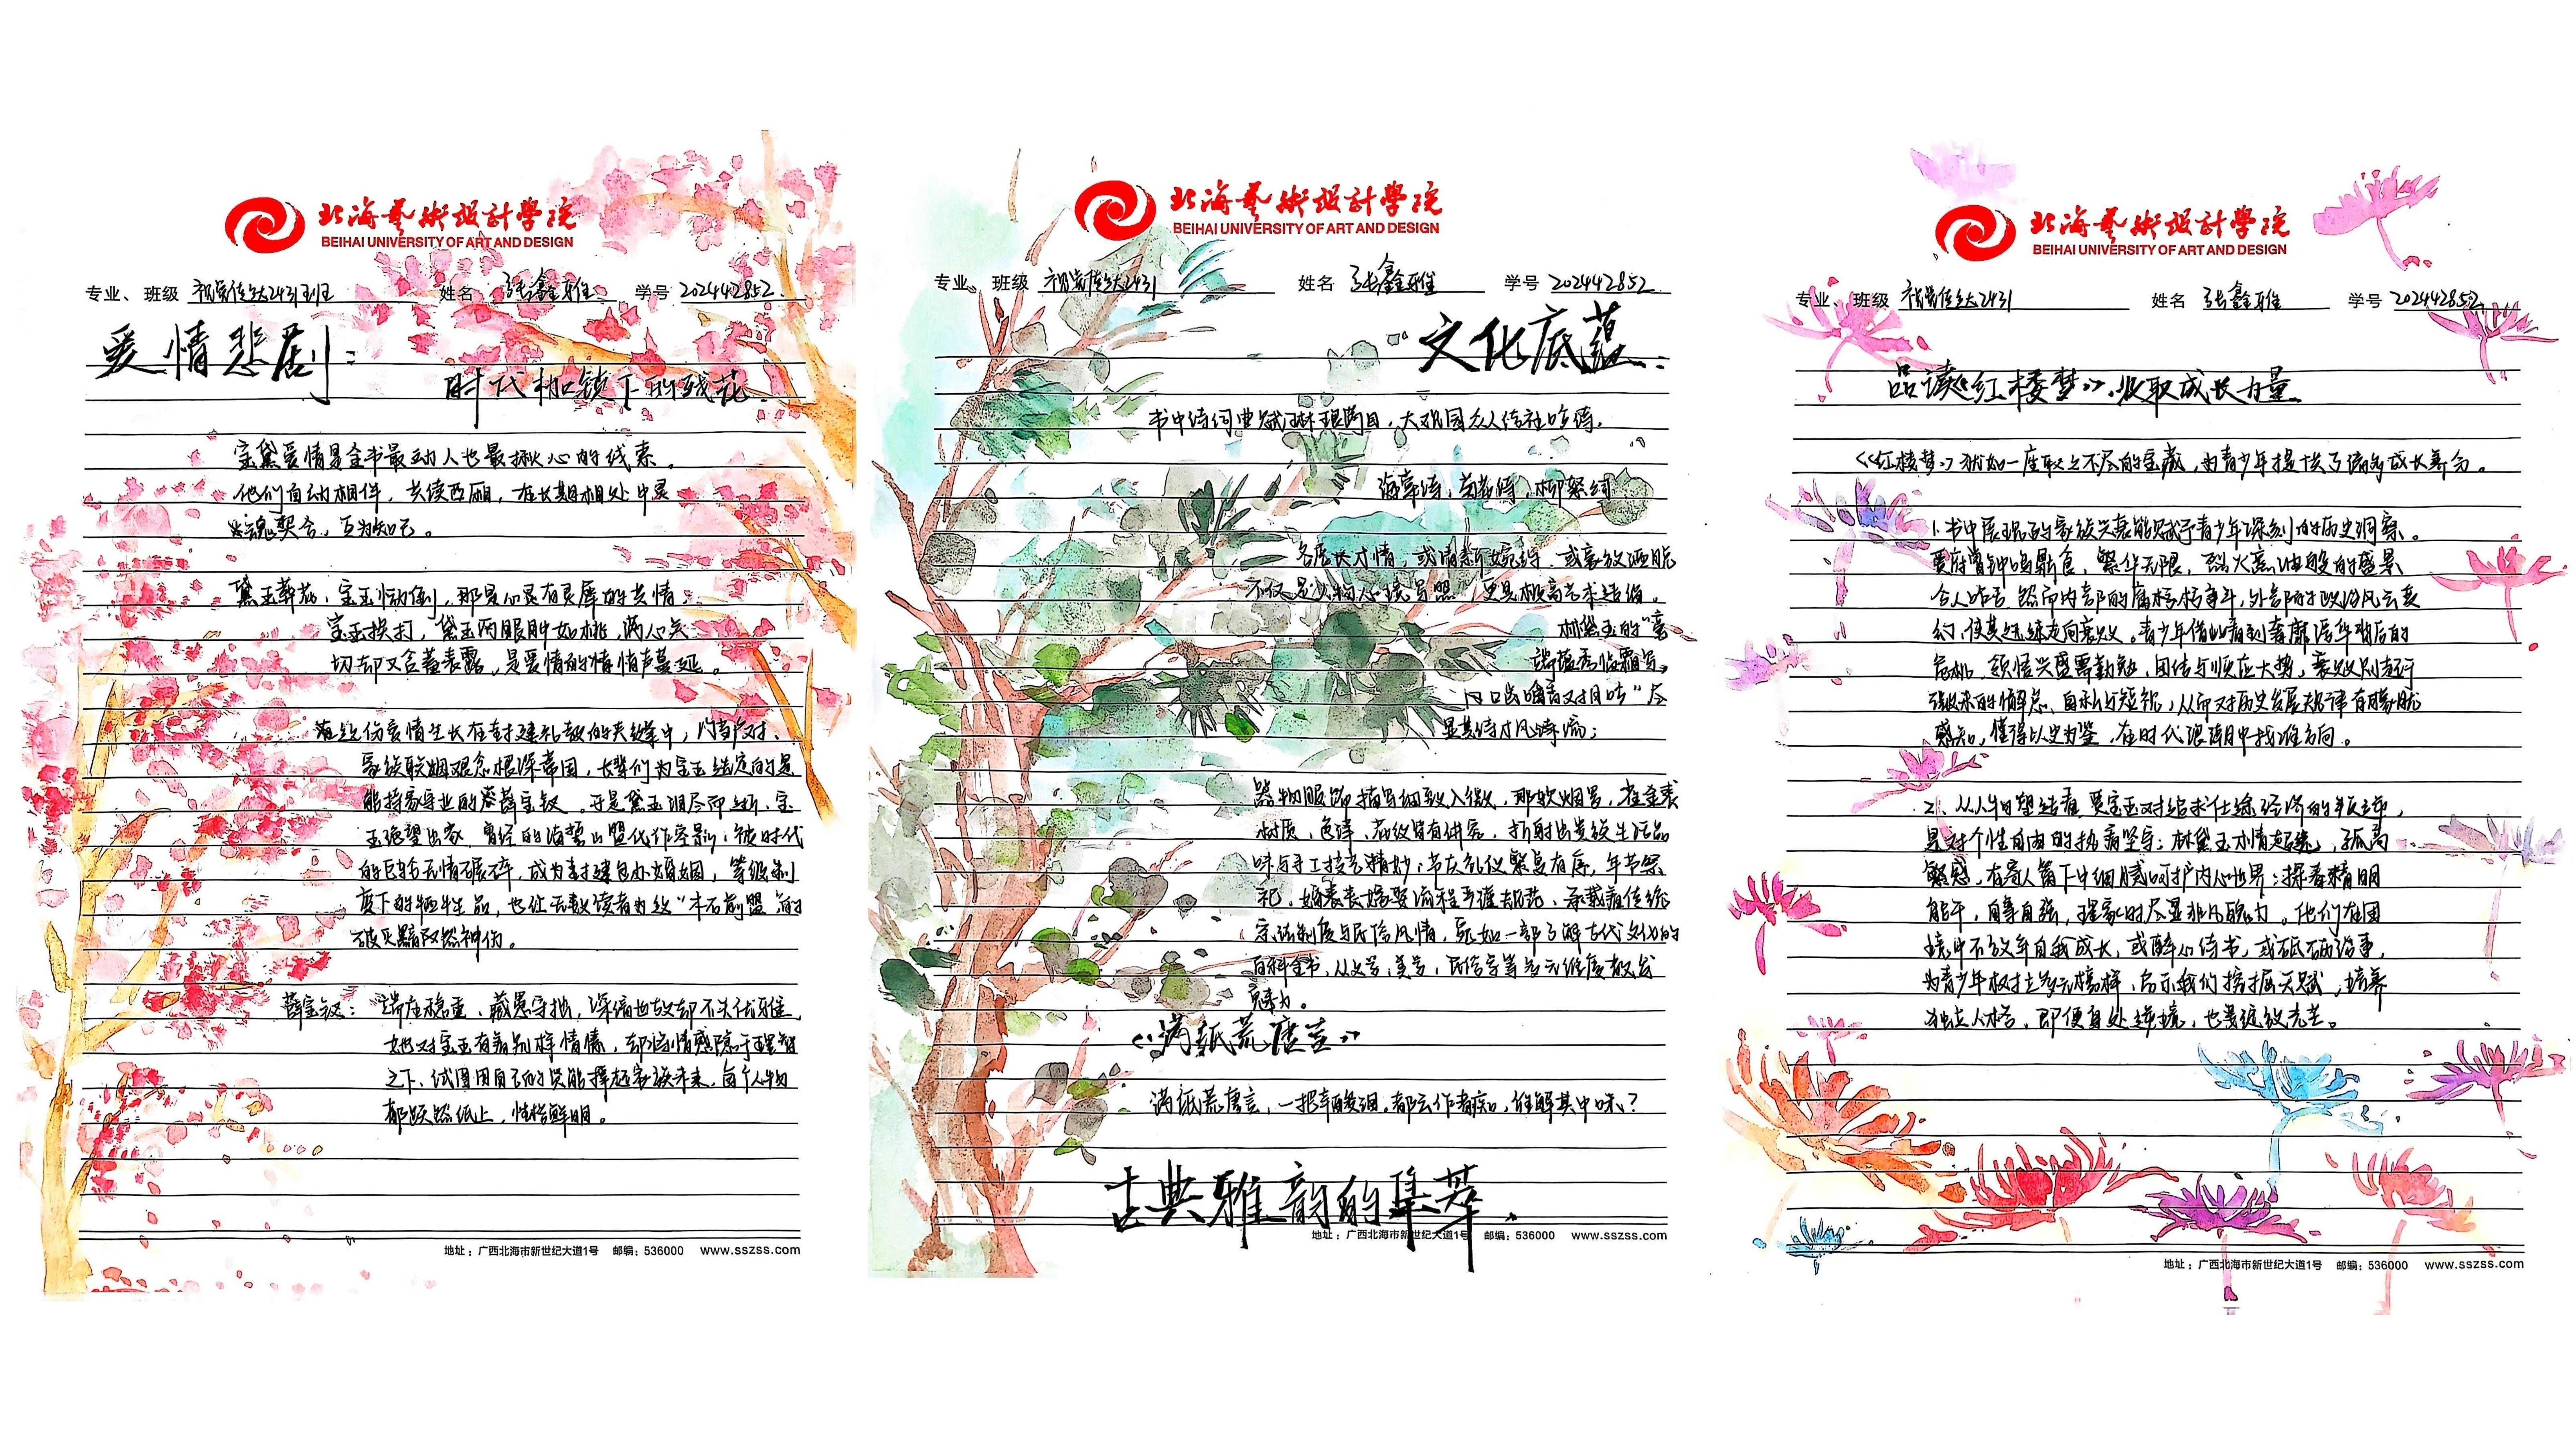 北海艺术设计学院
BEIHAI UNIVERSITY OF ART AND DESIGN
专业、班级 视觉传达2431班 姓名 张鑫雅 学号 202442852
爱情悲剧:
时代枷锁下的残花.
宝黛爱情是全书最动人也最揪心的线索。
他们自幼相伴,共读西厢,在长期相处中灵
魂契合,互为知己。
黛玉葬花,宝玉恸倒,那是心灵有灵犀的共情;
宝玉挨打,黛玉两眼肿如桃,满心关
切却又含蓄表露,是爱情的情愫声蔓延。
这份爱情生长在封建礼教的夹缝中,门当户对、
家族联姻观念根深蒂固,长辈们为宝玉选定的是
能持家守业的薛宝钗。于是黛玉泪尽而逝、宝
玉绝望出家,曾经的海誓山盟化作空影;被时代
的巨轮无情碾碎,成为封建包办婚姻,等级制
度下的牺牲品,也让无数读者为这"木石前盟"的
破灭黯然神伤。
薛宝钗:端庄稳重,藏愚守拙,深谙世故却不失优雅,
她对宝玉有着别样情愫,却将情感隐于理智
之下,试图用自己的贤能撑起家族未来,每个人物
都跃然纸上,性格鲜明。
地址:广西北海市新世纪大道1号 邮编:536000 www.sszss.com
北海艺术设计学院
BEIHAI UNIVERSITY OF ART AND DESIGN
专业、班级 视觉传达2431 姓名 张鑫雅 学号 202442852
文化底蕴:
书中诗词曲赋琳琅满目,大观园众人结社吟诗,
海棠诗,菊花诗,柳絮词
各展其才情,或清新婉约、或豪放洒脱
不仅是人物心境写照,更是极高艺术结晶。
林黛玉的"毫
端蕴秀临霜写,
口齿噙香对月吟"尽
显其诗才风流;
器物服饰描写细致入微,那软烟罗,雀金裘
材质、色泽、花纹皆有讲究,折射出贵族生活品
味与手工技艺精妙;节庆礼仪繁复有序,年节祭
祀,婚丧嫁娶流程严谨规范,承载着传统
宗法制度与民俗风情,宛如一部了解古代文化的
百科全书,从文学,美学,民俗学等多元维度散发
魅力。
《满纸荒唐言》
满纸荒唐言,一把辛酸泪。都云作者痴,谁解其中味?
古典雅韵的集萃.
地址:广西北海市新世纪大道1号 邮编:536000 www.sszss.com
北海艺术设计学院
BEIHAI UNIVERSITY OF ART AND DESIGN
专业、班级 视觉传达2431 姓名 张鑫雅 学号 202442852
品读《红楼梦》,汲取成长力量
《红楼梦》犹如一座取之不尽的宝藏,为青少年提供了诸多成长养分。
1. 书中展现的家族兴衰能赋予青少年深刻的历史洞察。
贾府曾钟鸣鼎食,繁华无限,烈火烹油般的盛景
令人咋舌,然而内部的腐朽格争斗,外部的政治风云变
幻,使其逐步走向衰败。青少年借此看到奢靡浮华背后的
危机,领悟兴盛需勤勉,团结与顺应大势,衰败则起于
的懈怠、自私与短视,从而对历史发展规律有朦胧
感知,懂得以史为鉴,在时代浪潮中找准方向。
2. 从人物塑造看,贾宝玉对追求仕途经济的叛逆,
是对个性自由的执着坚守;林黛玉才情超逸,孤高
敏感,在寄人篱下中细腻呵护内心世界;探春精明
能干,自尊自强,理家时尽显非凡魄力。他们在困
境中不放弃自我成长,或醉心诗书,或砥砺治事,
为青少年树立多元榜样,启示我们挖掘天赋,培养
独立人格,即便身处逆境,也要绽放光芒。
地址:广西北海市新世纪大道1号 邮编:536000 www.sszss.com